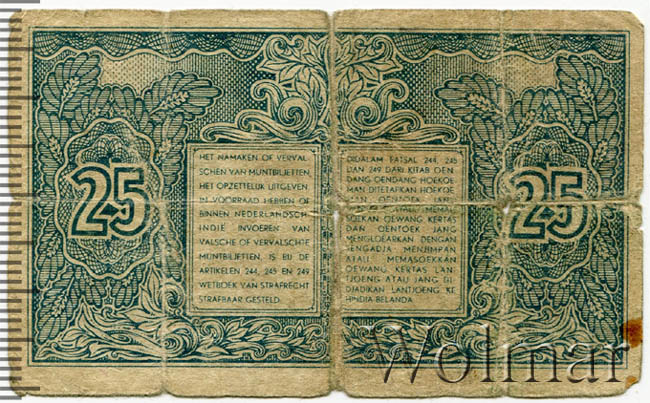 25
HET NAMAKEN OF VERVAL-
SCHEN VAN MUNTBILJETTEN,
HET OPZETTELIJK UITGEVEN
IN VOORRAAD HEBBEN OF
BINNEN NEDERLANDSCH-
INDIË INVOEREN VAN
VALSCHE OF VERVALSCHTE
MUNTBILJETTEN, IS BIJ DE
ARTIKELEN 244, 245 EN 249
WETBOEK VAN STRAFRECHT
STRAFBAAR GESTELD.
DIDALAM FATSAL 244, 245
DAN 249 DARI KITAB OEN-
DANG OENDANG HOEKOE-
MAN DITETAPKAN HOEKOE-
MAN OENTOEK
ATAU MEMAL-
SOEKAN OEWANG KERTAS
DAN OENTOEK JANG
MENGLOEARKAN DENGAN
SENGADJA MENJIMPAN
ATAU MEMASOEKKAN
OEWANG KERTAS LAN-
TJOENG ATAU JANG DI-
DJADIKAN LANTJOENG KE
HINDIA BELANDA.
25
Wolmar